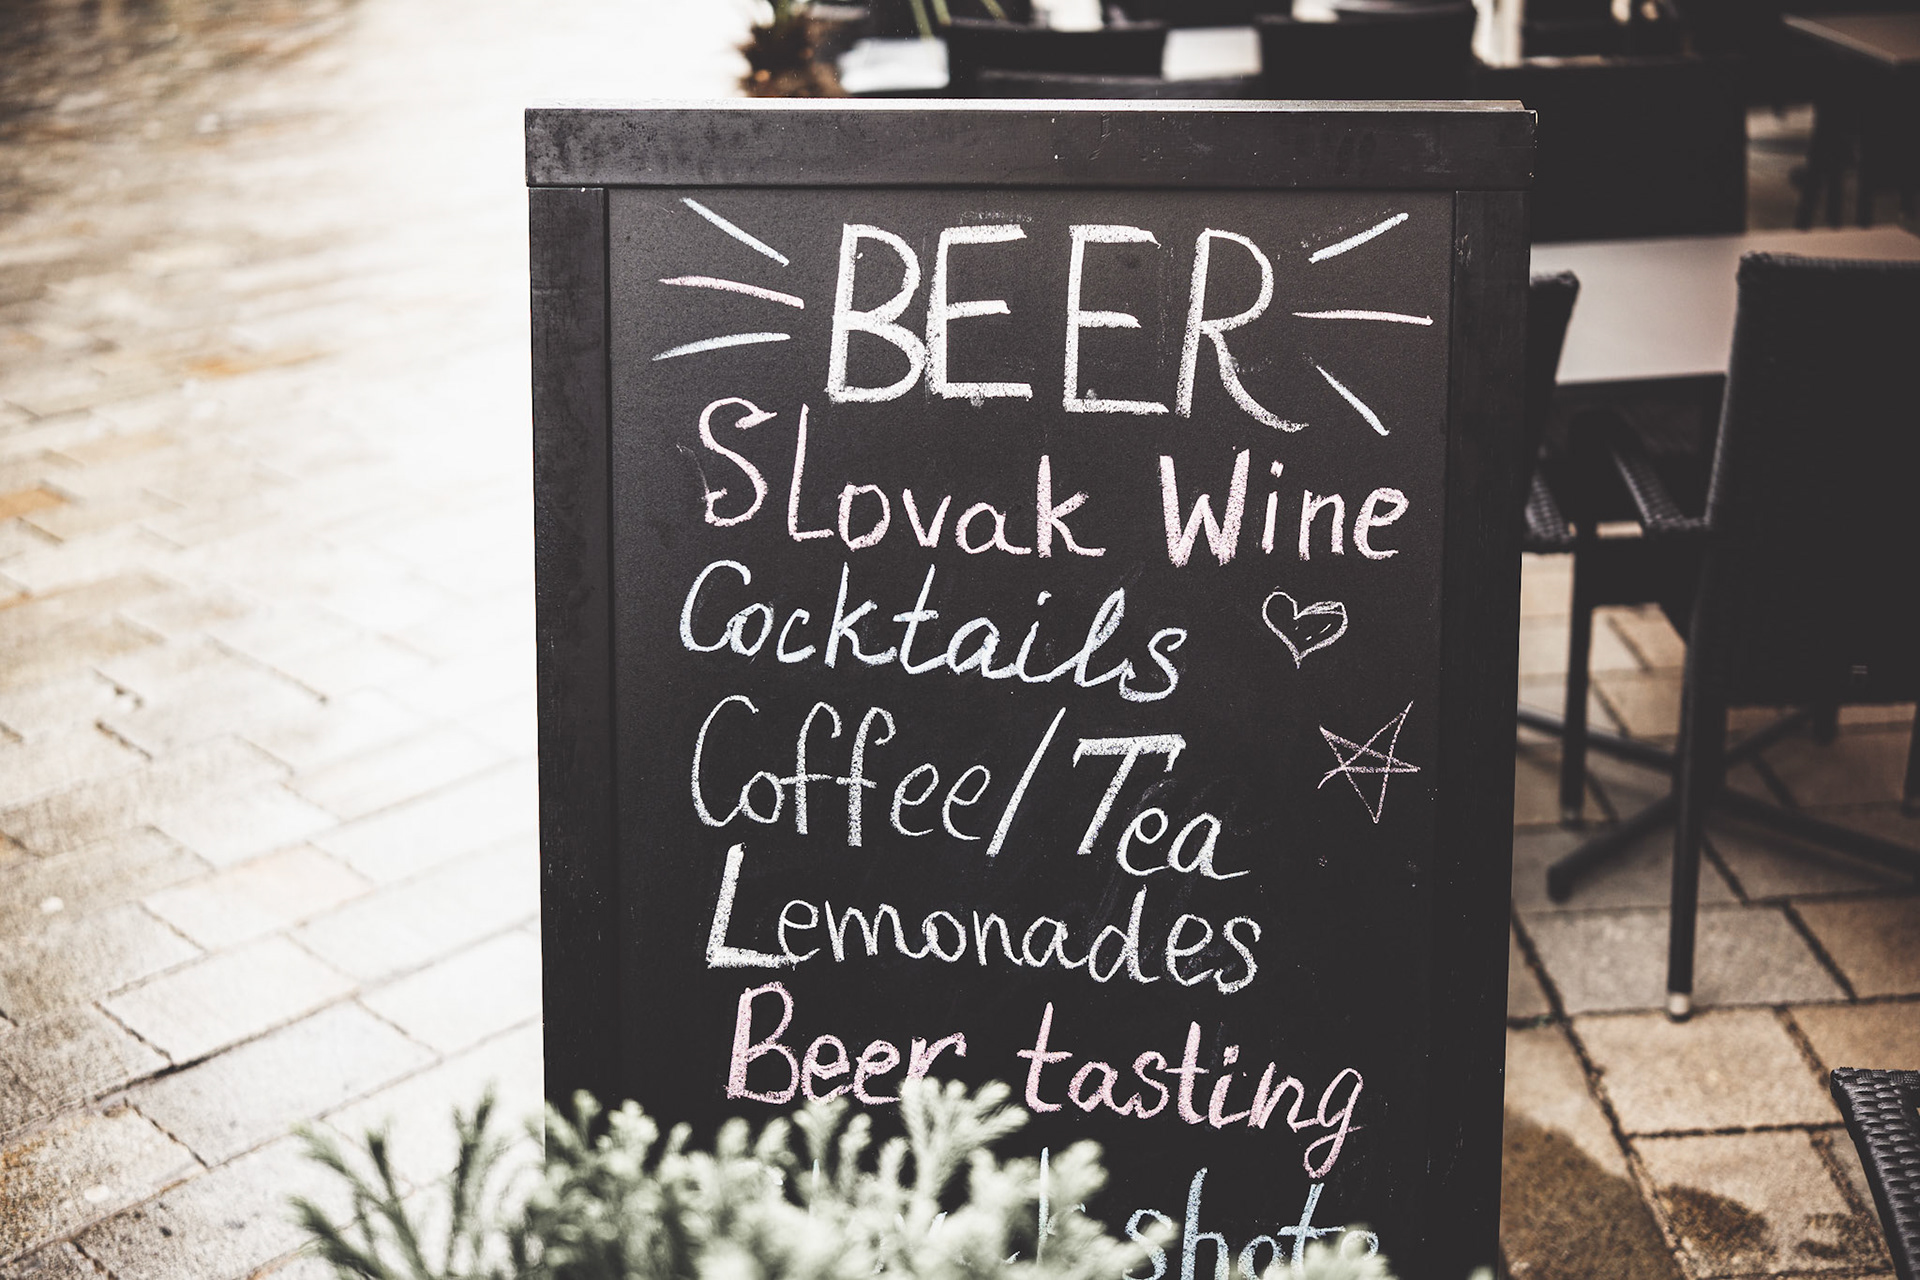 BEER
Slovak Wine
Cocktails
Coffee/Tea
Lemonades
Beer tasting
shots